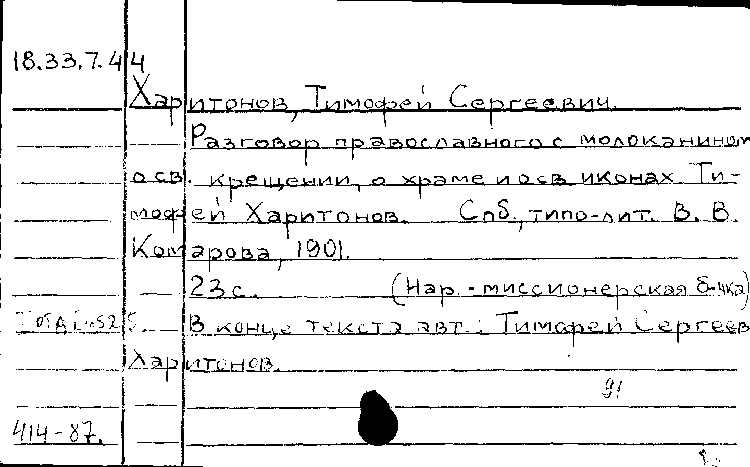 18.33.7.44
Харитонов, Тимофей Сергеевич.
Разговор православного с молоканином
о св. крещении, о храме и о св. иконах Ти-
мофей Харитонов. Спб., типо-лит. В. В.
Комарова, 1901.
23 с. (Нар.-миссионерская б-чка)
В конце текста авт.: Тимофей Сергеев
Харитонов.
91
414-87.